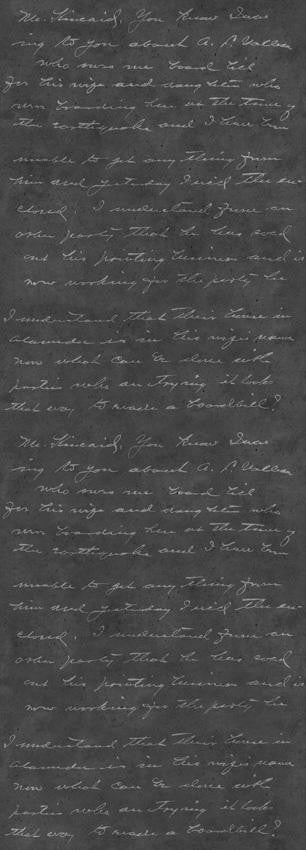 Mr. Kincaid, You know I was
ing to you about A. P.
who owes me board bill
for his wife and daughter who
were boarding here at the time of
the earthquake and I have been
unable to get any thing from
him and yesterday I
closed. I understand from an
other party that he has sold
out his printing business and is
now working for the party he
I understand that their house in
Alameda is in his wife's name
now what can be done with
parties who are trying it looks
that way to evade a boardbill?
Mr. Kincaid, You know I was
ing to you about A. P.
who owes me board bill
for his wife and daughter who
were boarding here at the time of
the earthquake and I have been
unable to get any thing from
him and yesterday I
closed. I understand from an
other party that he has sold
out his printing business and is
now working for the party he
I understand that their house in
Alameda is in his wife's name
now what can be done with
parties who are trying it looks
that way to evade a boardbill?